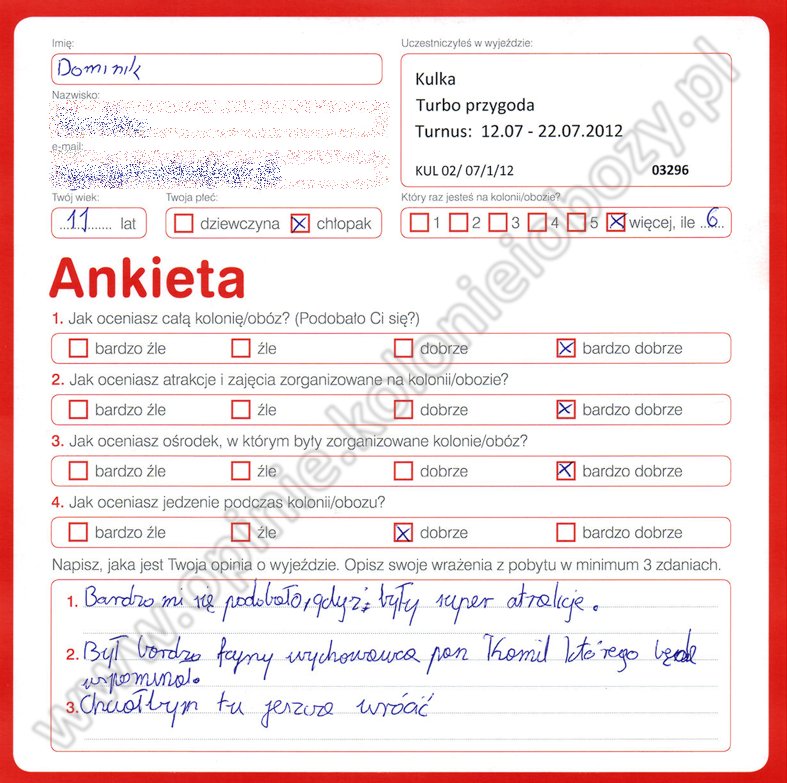 Imię:
Uczestniczyłeś w wyjeździe:
Dominik
Kulka
Turbo przygoda
Turnus: 12.07 - 22.07.2012
KUL 02/ 07/1/12 03296
Nazwisko:
e-mail:
Twój wiek:
Twoja płeć:
Który raz jesteś na kolonii/obozie?
11 lat
dziewczyna chłopak
1 2 3 4 5 więcej, ile 6
Ankieta
1. Jak oceniasz całą kolonię/obóz? (Podobało Ci się?)
bardzo źle źle dobrze bardzo dobrze
2. Jak oceniasz atrakcje i zajęcia zorganizowane na kolonii/obozie?
bardzo źle źle dobrze bardzo dobrze
3. Jak oceniasz ośrodek, w którym były zorganizowane kolonie/obóz?
bardzo źle źle dobrze bardzo dobrze
4. Jak oceniasz jedzenie podczas kolonii/obozu?
bardzo źle źle dobrze bardzo dobrze
Napisz, jaka jest Twoja opinia o wyjeździe. Opisz swoje wrażenia z pobytu w minimum 3 zdaniach.
1. Bardzo mi się podobało, gdyż były super atrakcje.
2. Był bardzo fajny wychowawca pan Kamil którego będe
wspominał.
3. Chciałbym tu jeszcze wrócić
www.opinie.kolonieiobozy.pl